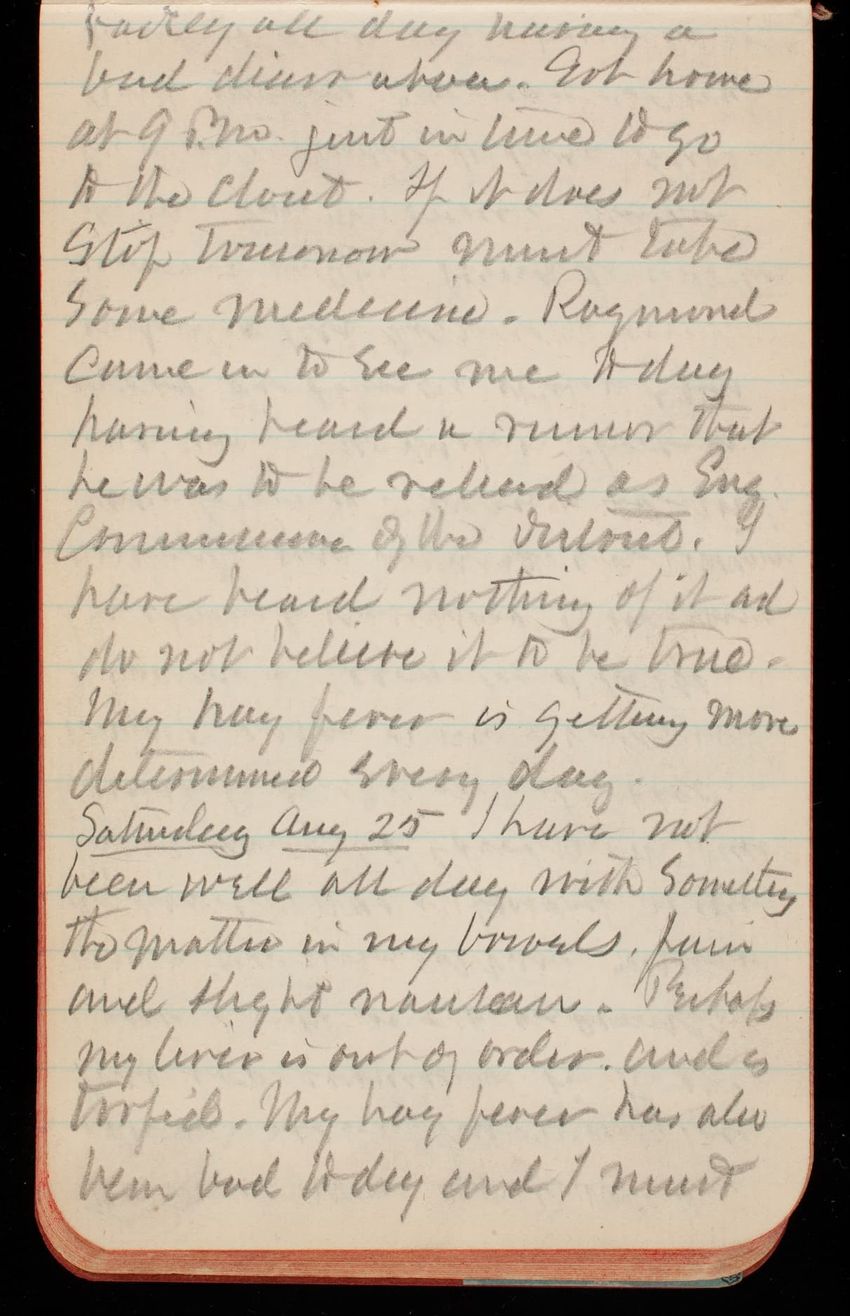 badly all day having a
bad diarrhoea. Got home
at 9 P.M. just in time to go
to the closet. If it does not
stop tomorrow must take
some medicine. Raymond
came in to see me today
having heard a rumor that
he was to be relieved as Eng.
Commissioner of the District. I
have heard nothing of it and
do not believe it to be true.
My hay fever is getting more
determined every day.
Saturday Aug 25 I have not
been well all day with something
the matter in my bowels. Pain
and slight nausea. Perhaps
my liver is out of order. and is
torpid. My hay fever has also
been bad today and I must